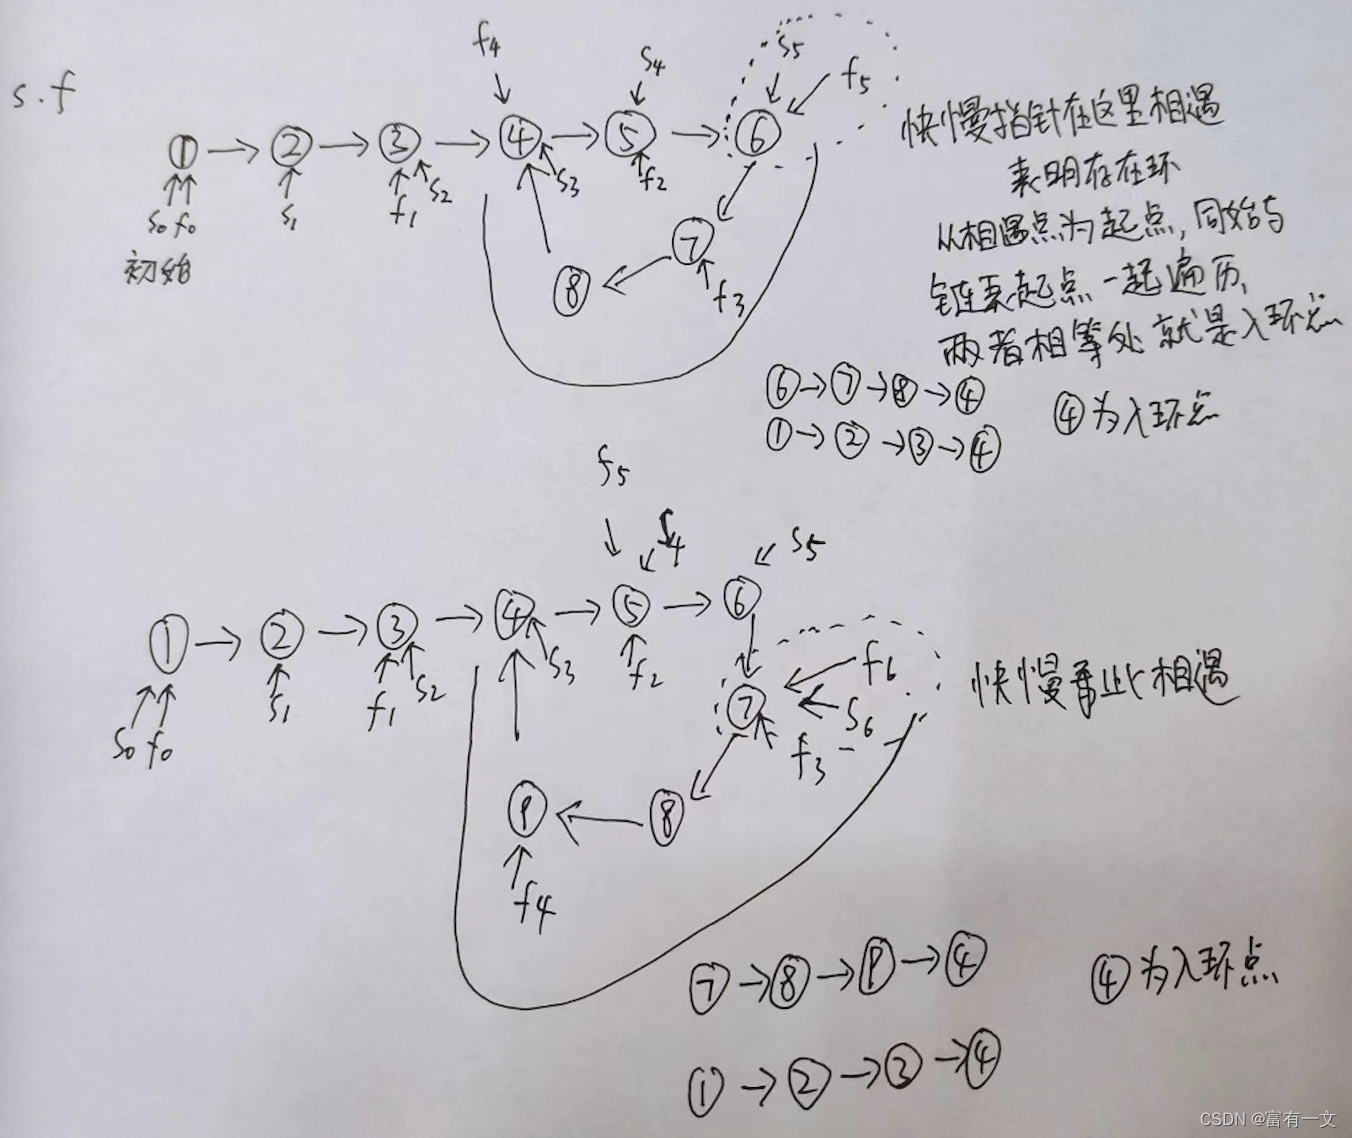 s.f
f4
s4
s5
f5
① → ② → ③ → ④ → ⑤ → ⑥
s0 f0
s1
f1
s2
s3
f2
初始
⑦
f3
⑧
快慢指针在这里相遇
表明存在环
从相遇点为起点,同始与
链表起点一起遍历,
两者相等处就是入环点
⑥→⑦→⑧→④
①→②→③→④
④为入环点
f5
s4
s5
① → ② → ③ → ④ → ⑤ → ⑥
s0 f0
s1
f1
s2
s3
f2
⑦
f6
s6
f3
快慢再此相遇
⑨
⑧
f4
⑦→⑧→⑨→④
④为入环点
①→②→③→④
CSDN @富有一文